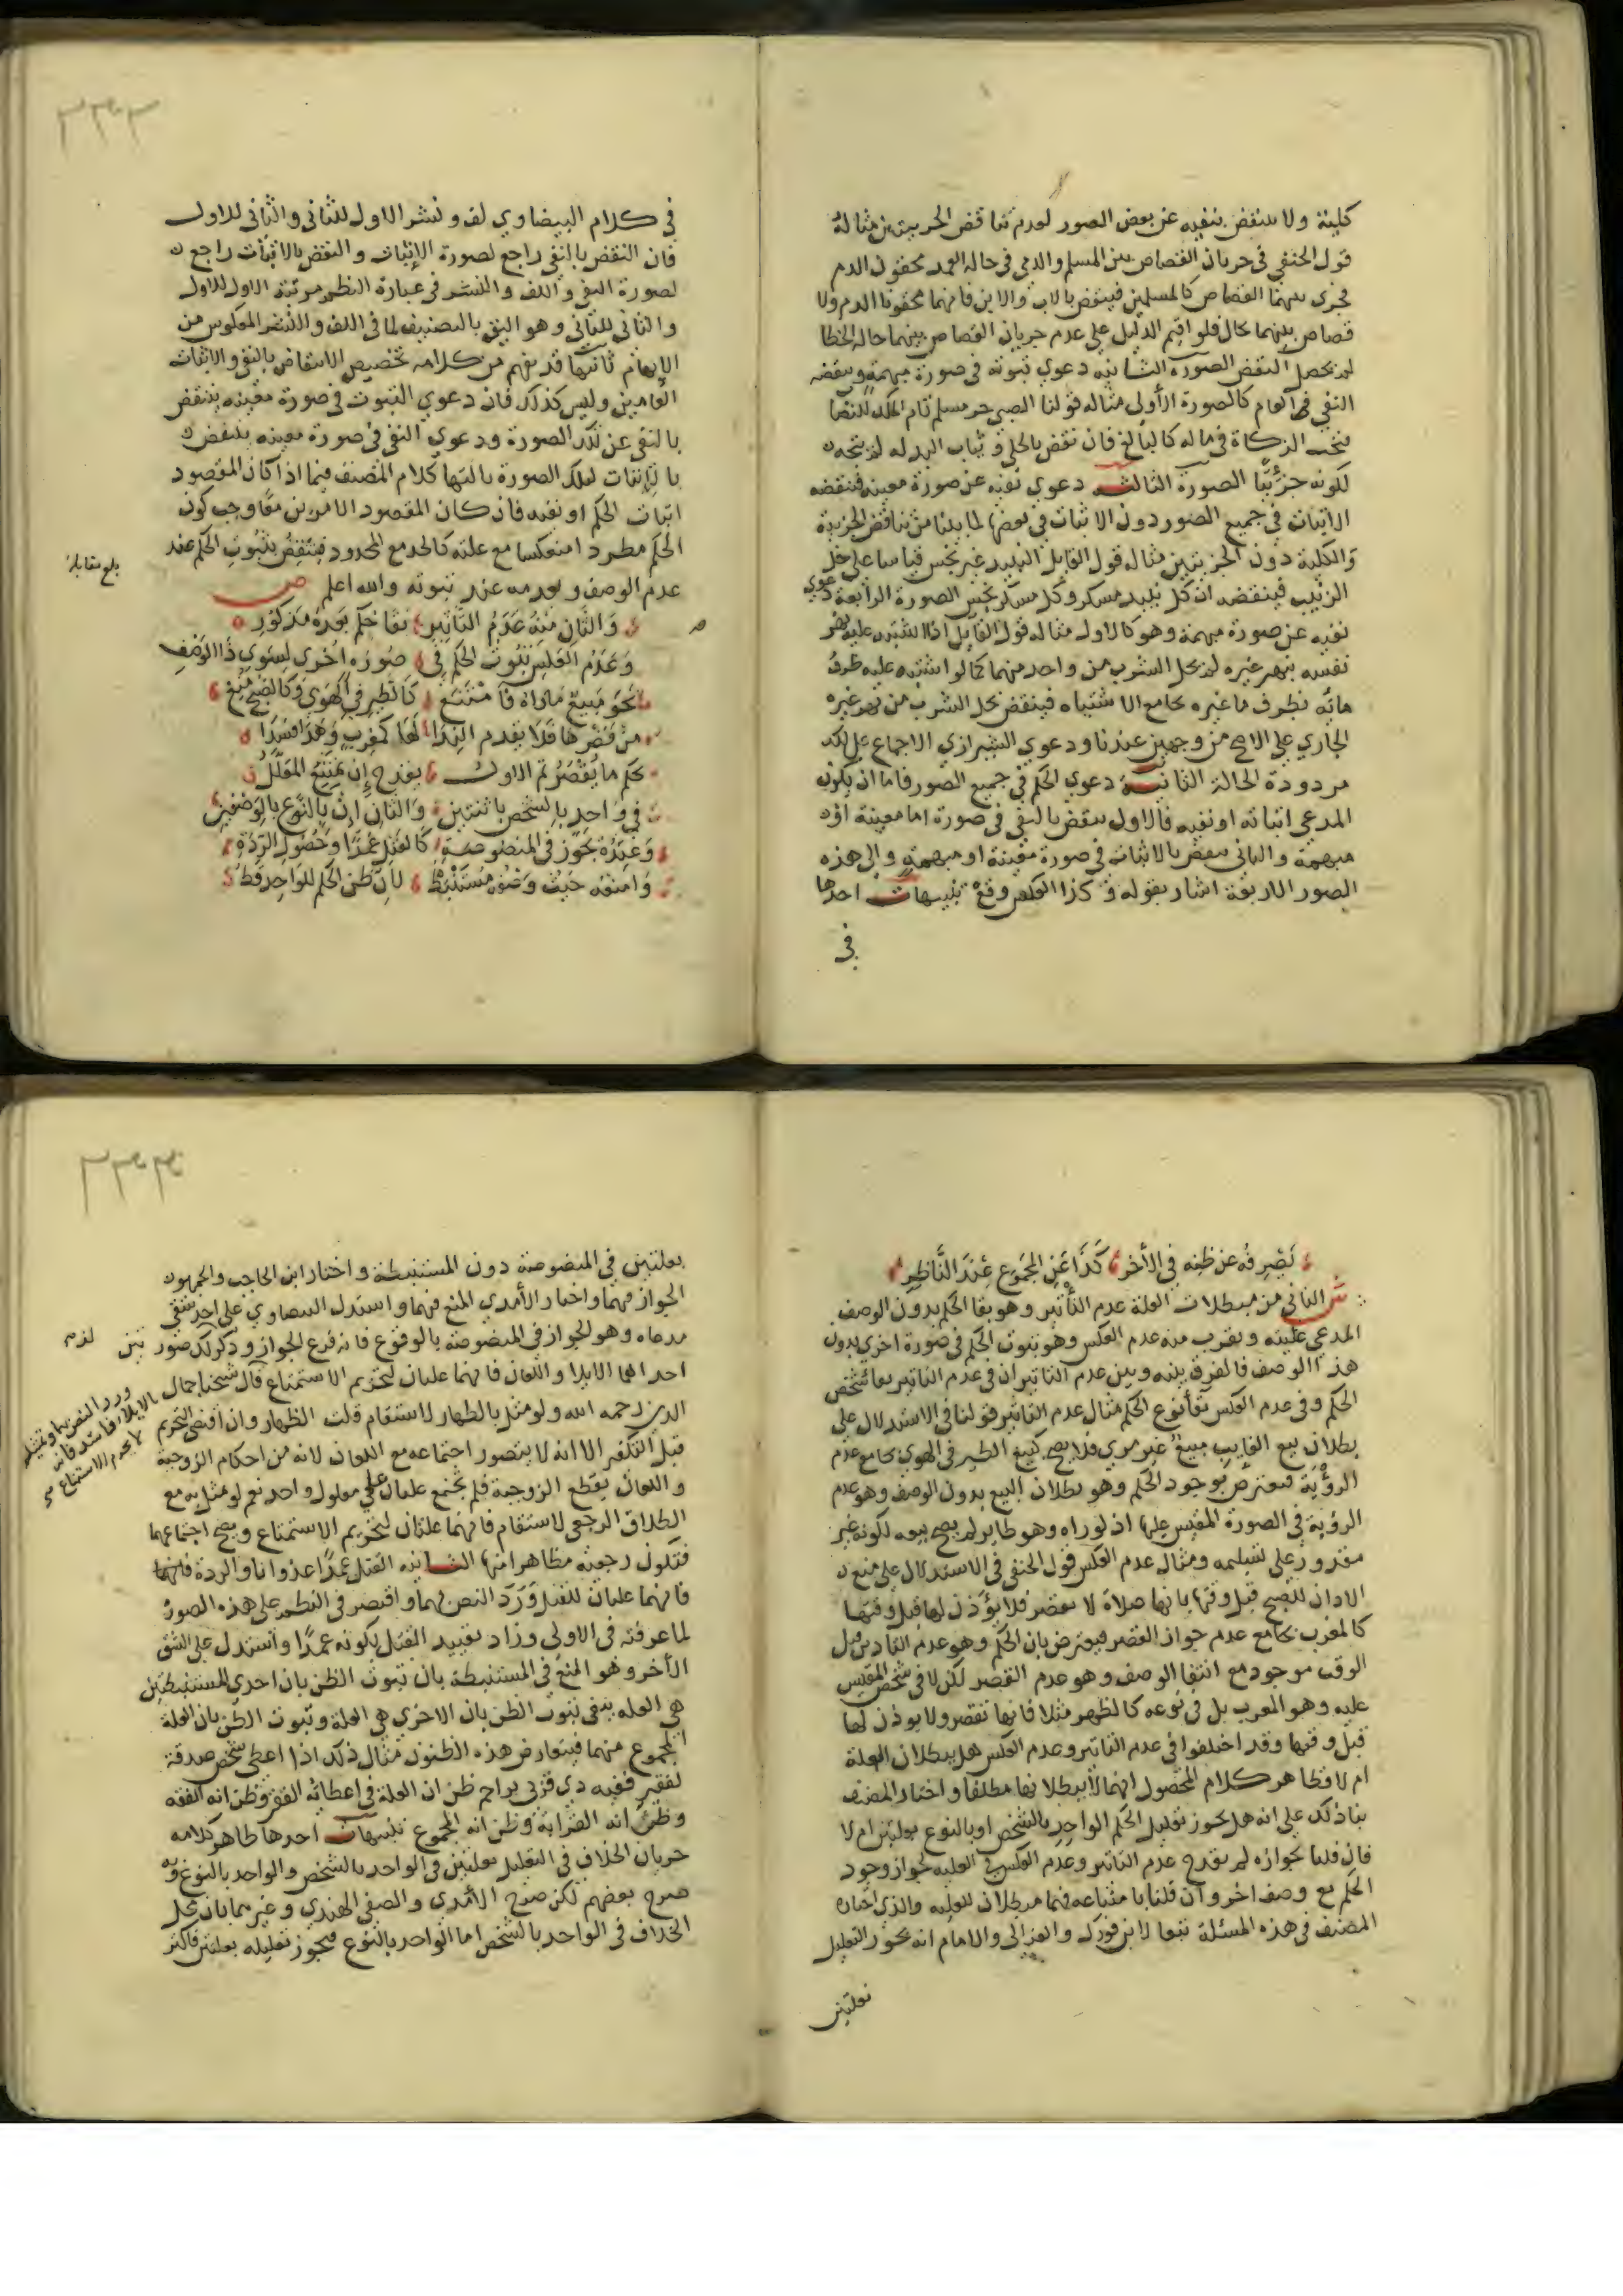 كلية ولا ينتقض بنفيه عن بعض الصور لعدم تناقض الجزءيتين مثاله
قول الحنفي في جريان القصاص بين المسلم والذمي في حاله العمد محقون الدم
فجرى بينهما القصاص كالمسلمين فينتقض بالاب والابن فانهما محقونا الدم ولا
قصاص بينهما بحال فلو اقيم الدليل على عدم جريان القصاص بينهما حاله الخطا
لم يحصل النقض الصورة الثانيه دعوي ثبوته في صورة مبهمة وينقضه
النفي العام كالصورة الأولى مثاله قولنا الصبي حر مسلم تام الملك للنصاب
فتجب الزكاة في ماله كالبالغ فان نقض بالحلي وثياب البدله لم يتجه
لكونه جزئيًا الصورة الثالثه دعوي نفيه عن صورة معينه فينقضه
الاثبات في جميع الصور دون الاثبات في بعضها لما بينا من تناقض الجزءية
والكلية دون الجزءيتين مثاله قول القايل النبيذ غير نجس قياسا على خل
الزبيب فينقضه ان كل نبيذ مسكر وكل مسكر نجس الصورة الرابعة دعوي
نفيه عن صورة مبهمة وهو كالاول مثاله قول القايل اذا اشتبه عليه نهر
نفسه بنهر غيره لم يحل الشرب من واحد منهما كما لو اشتبه عليه ظرف
مائه بظرف ماغيره بجامع الاشتباه فينتقض بحل الشرب من نهر غيره
الجاري على الاصح من وجهين عندنا ودعوي الشيرازي الاجماع على ذلك
مردودة الحالة الثانية دعوي الحكم في جميع الصور فاما ان يكون
المدعى اثباته او نفيه فالاول ينتقض بالنفي في صورة اما معينة او
مبهمة والثاني ينتقض بالاثبات في صورة معينة او مبهمة والى هذه
الصور الاربعة اشار بقوله وكذا العكس وقع تنبيهات احدها
في
في كلام البيضاوي لف ونشر الاول للثاني والثاني للاول
فان النقض بالنفي راجع لصورة الإثبات والنقض بالاثبات راجع
لصورة النفي واللف والنشر في عبارة النظم مرتبة الاول للاول
والثاني للثاني وهو اليق بالتصنيف لما في اللف والنشر المعكوس من
الإيهام ثانيها قد يفهم من كلامه تخصيص الانتقاض بالنفي والاثبات
العامين وليس كذلك فان دعوي الثبوت في صورة معينه ينتقض
بالنفي عن تلك الصورة ودعوي النفي في صورة معينه ينتقض
بالإثبات لتلك الصورة ثالثها كلام المصنف فيما اذا كان المقصود
اثبات الحكم او نفيه فان كان المقصود الامرين معًا وجب كون
الحكم مطردا منعكسا مع علته كالحد مع المحدود فينتقض بثبوت الحكم عند
بلغ مقابلة
عدم الوصف وبعدمه عند ثبوته والله اعلم ص
والثان منه عدم التاثير بقا حكم بعده مذكور
وعدم العكس ثبوت الحكم في صوره اخرى لسوي ذا الوصف
نحو مبيع ماراه فامتنع كالطير في الهوى وكالصبح منع
من قصرها فلا يقدم الندا لها كمغرب وهذا فسدا
بحكم ما يقصر ثم الاول يقدح إن يمتنع المعلل
في واحد بالشخص باثنتين والثان إن بالنوع بالوصفين
وعنده يجوز في المنصوصة كالقتل عمدًا وحصول الردة
وامنعه حيث وصفه مستنبط لأن ظن الحكم للواحد قط
نصرفه عن ظنه في الأخر كذا عن المجموع عند الناظر
ش الثاني من مبطلات العلة عدم التأثير وهو بقا الحكم بدون الوصف
المدعى عليته ويقرب منه عدم العكس وهو ثبوت الحكم في صورة اخرى بدون
هذا الوصف فالفرق بينه وبين عدم التاثير ان في عدم التاثير بقا شخص
الحكم وفي عدم العكس بقا نوع الحكم مثال عدم التاثير قولنا في الاستدلال على
بطلان بيع الغايب مبيع غير مرى فلا يصح كبيع الطير في الهوى بجامع عدم
الرؤية فيعترض بوجود الحكم وهو بطلان البيع بدون الوصف وهو عدم
الرؤية في الصورة المقيس عليها اذ لو راه وهو طاير لم يصح بيعه لكونه غير
مقدور على تسليمه ومثال عدم العكس قول الحنفي في الاستدلال على منع
الاذان للصبح قبل وقتها بانها صلاة لا تقصر فلا يؤذن لها قبل وقتها
كالمغرب بجامع عدم جواز القصر فيعترض بان الحكم وهو عدم التاذين قبل
الوقت موجود مع انتفا الوصف وهو عدم القصر لكن لا في شخص المقيس
عليه وهو المغرب بل في نوعه كالظهر مثلا فانها تقصر ولا يوذن لها
قبل وقتها وقد اختلفوا في عدم التاثير وعدم العكس هل يبطلان العلة
ام لا فظاهر كلام المحصول انهما لا يبطلانها مطلقا واختار المصنف
بنا ذلك على انه هل يجوز تعليل الحكم الواحد بالشخص او بالنوع بعلتين ام لا
فان قلنا بجوازه لم يقدح عدم التاثير وعدم العكس في العلية لجواز وجود
الحكم مع وصف اخر وان قلنا بامتناعه فهما مبطلان للعليه والذي اختاره
المصنف في هذه المسئلة تبعا لابن فورك والغزالي والامام انه يجوز التعليل
بعلتين
بعلتين في المنصوصة دون المستنبطة واختار ابن الحاجب والجمهور
الجواز فيهما واختار الأمدي المنع فيهما واستدل البيضاوي على احد شقي
مدعاه وهو الجواز في المنصوصة بالوقوع فانه فرع الجواز وذكر لذلك صورتين
احداهما الايلا واللعان فانهما علتان لتحريم الاستمتاع قال شيخنا جمال
الدين رحمه الله ولو مثل بالظهار لاستقام قلت الظهار وان اقتضى التحريم
قبل التكفير الا انه لا يتصور اجتماعه مع اللعان لانه من احكام الزوجية
واللعان يقطع الزوجية فلم يجتمع علتان على معلول واحد نعم لو مثل به مع
الطلاق الرجعي لاستقام فانهما علتان لتحريم الاستمتاع ويصح اجتماعهما
فتكون رجعية مظاهرا منها الثانيه القتل عمدًا عدوانا والردة فانهما
فانهما علتان للقتل وَرَدَ النص بهما واقتصر في النظم على هذه الصورة
لما عرفته في الاولى وزاد تقييد القتل بكونه عمدًا واستدل على الشق
الأخر وهو المنع في المستنبطة بان ثبوت الظن بان احدى المستنبطتين
هي العله ينفي ثبوت الظن بان الاخرى هي العلة وثبوت الظن بان العلة
المجموع منهما فيتعارض هذه الظنون مثال ذلك اذا اعطى شخص صدقة
لفقير فقيه ذي قربى تزاحم ظن ان العلة في اعطائه الفقر وظن انه الفقه
وظن انه القرابة وظن انه المجموع تنبيهات احدها ظاهر كلامه
جريان الخلاف في التعليل بعلتين في الواحد بالشخص والواحد بالنوع وبه
صرح بعضهم لكن صرح الأمدي والصفي الهندي وغيرهما بان محل
الخلاف في الواحد بالشخص اما الواحد بالنوع فيجوز تعليله بعلتين فاكثر
ورد النص بهما وتمثيله
بالايلاء فاسد فانه
لا يحرم الاستمتاع صح